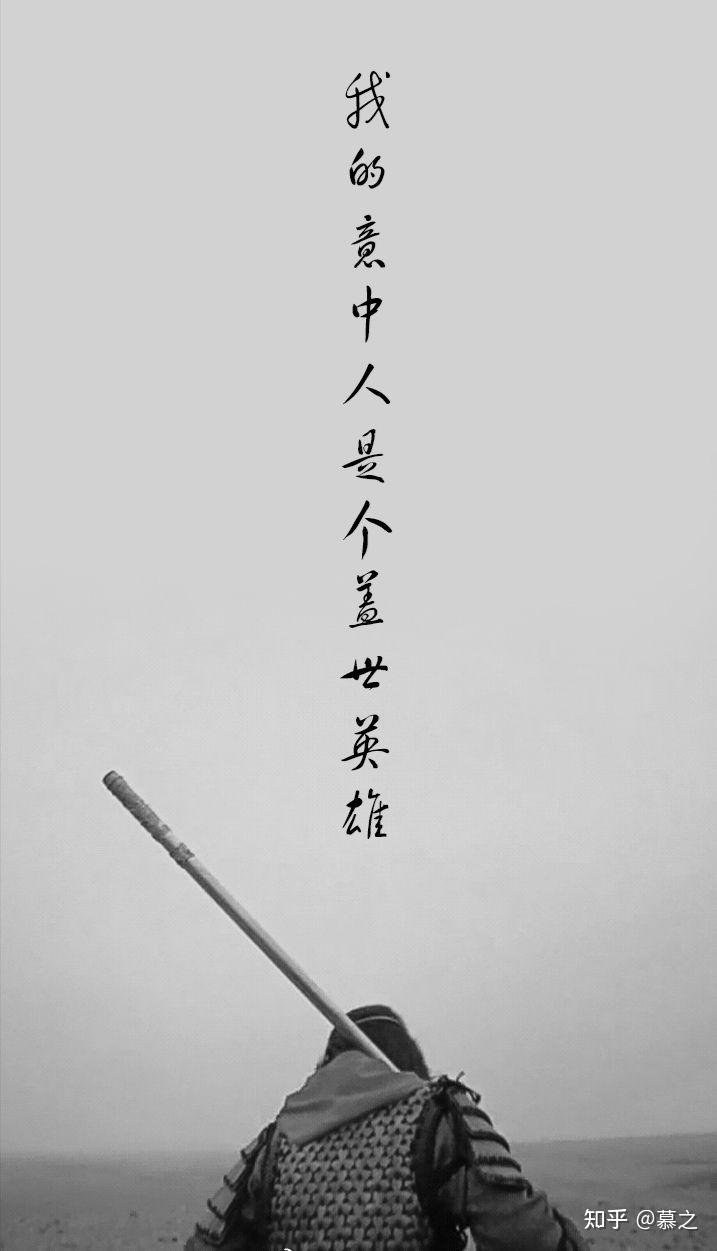 我的意中人是个盖世英雄
知乎 @慕之